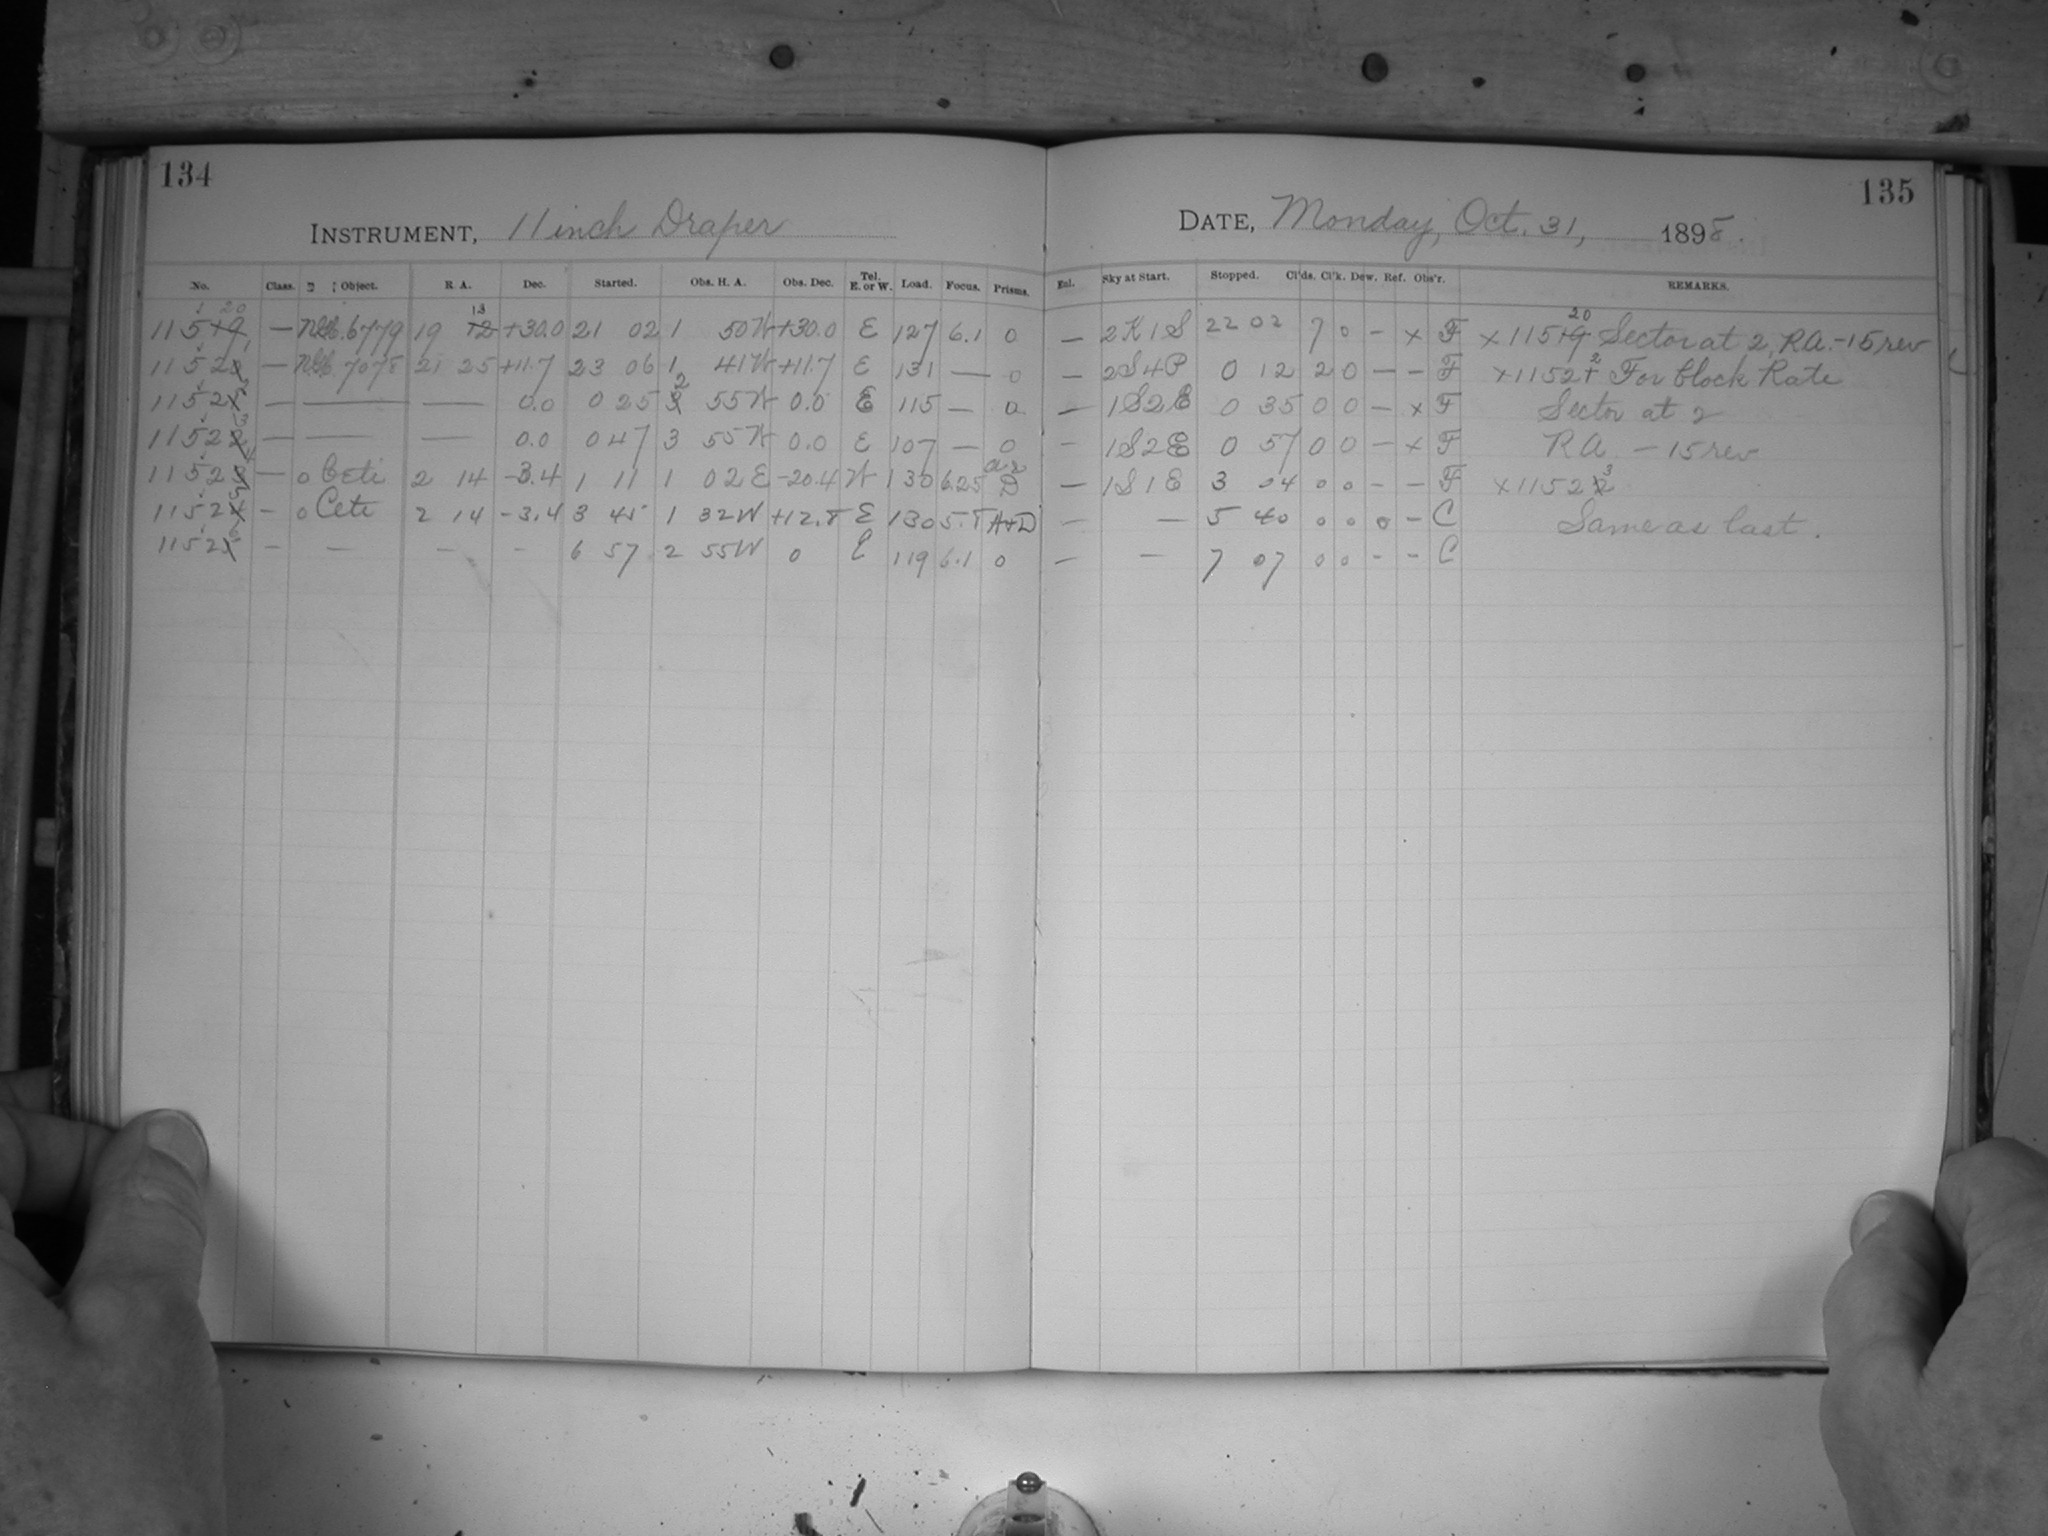 134
INSTRUMENT, 11 inch Draper
No. Class. Object. R. A. Dec. Started. Obs. H. A. Obs. Dec. Tel. E. or W. Load. Focus. Prisms.
11520 — 6779 19 13 +30.0 21 02 1 50 W +30.0 E 127 6.1 0
11521 — 7078 21 25 +11.7 23 06 1 41 W +11.7 E 131 — 0
11522 — — — 0.0 0 25 2 55 W 0.0 E 115 — 0
11523 — — — 0.0 0 47 3 55 W 0.0 E 107 — 0
11524 — o Ceti 2 14 -3.4 1 11 1 02 E -20.4 W 130 6.25 D
11525 — o Ceti 2 14 -3.4 3 45 1 32 W +12.8 E 130 5.8 A+D
11526 — — — — 6 57 2 55 W 0 E 119 6.1 0
135
DATE, Monday, Oct. 31, 1898.
Enl. Sky at Start. Stopped. Cl'ds. Cl'k. Dew. Ref. Obs'r. REMARKS.
— 2K1S 22 02 7 0 — × F × 11520 Sector at 2, RA. -15 rev
— 2S4P 0 12 2 0 — — F × 11522 For Clock Rate
— 1S2E 0 35 0 0 — × F Sector at 2
— 1S2E 0 57 0 0 — × F RA — 15 rev
— 1S1E 3 04 0 0 — — F × 11523
— — 5 40 0 0 0 — C Same as last.
— — 7 07 0 0 — — C